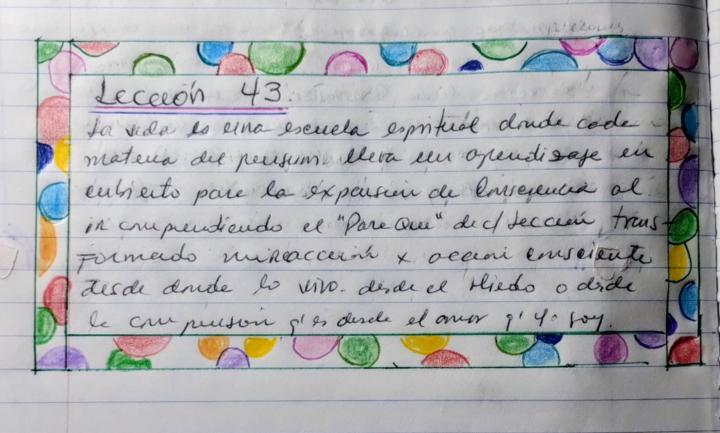 Lección 43.
La vida es una escuela espiritual donde cada
materia del pensum lleva un aprendizaje en
cubierto para la expansión de Consciencia al
ir comprendiendo el "Para Que" de c/ Lección trans-
formado mi reacción x acción consciente
desde donde lo vivo. desde el Miedo o desde
la comprensión q' es desde el amor q' yo soy.